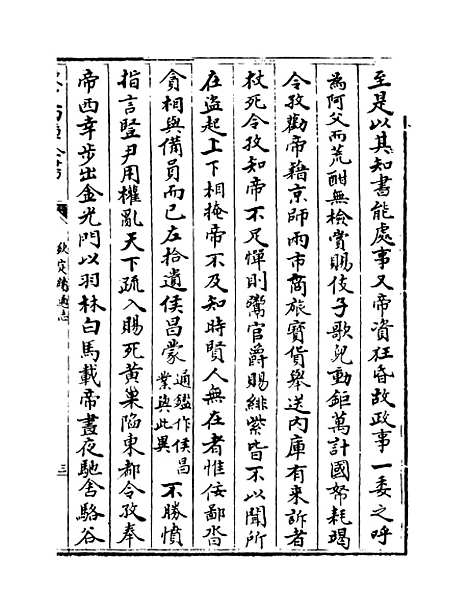 至是以其知書能處事又帝資狂昏故政事一委之呼
為阿父而荒酣無檢賞賜伎子歌兒動鉅萬計國帑耗竭
令孜勸帝籍京師兩市商旅寳貨舉送内庫有来訴者
杖死令孜知帝不足憚則鬻官爵賜緋紫皆不以聞所
在盗起上下相掩帝不及知時賢人無在者惟佞鄙沓
貪相與備員而已左拾遺侯昌蒙通鑑作侯昌業與此異不勝憤
指言豎尹用權亂天下疏入賜死黄巢陷東都令孜奉
帝西幸步出金光門以羽林白馬載帝晝夜馳舍駱谷
欽定續通志
三